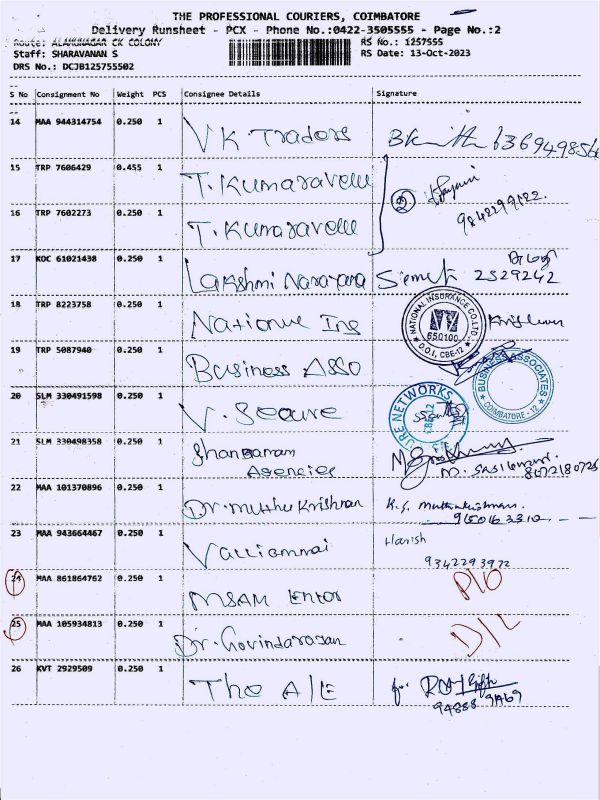 THE PROFESSIONAL COURIERS, COIMBATORE
Delivery Runsheet - PCX - Phone No.:0422-3505555 - Page No.:2
Route: ALAMUNAGAR CK COLONY
RS No.: 1257555
Staff: SHARAVANAN S
RS Date: 13-Oct-2023
DRS No.: DCJB125755502
S No Consignment No Weight PCS Consignee Details Signature
14 MAA 944314754 0.250 1 VK Traders
15 TRP 7606429 0.455 1 T. Kumaravelu
16 TRP 7602273 0.250 1 T. Kumaravelu
② 9842299122.
17 KOC 61021438 0.250 1 Lakshmi Narayana 2529242
18 TRP 8223758 0.250 1 National Ins
NATIONAL INSURANCE CO. LTD.
650100
D.O.1, CBE-12
19 TRP 5087940 0.250 1 Business Asso
BUSINESS ASSOCIATES
COIMBATORE - 12
20 SLM 330491598 0.250 1 V. Secure
NETWORKS
CBE-12
21 SLM 330498358 0.250 1 Shangaram
Agencies
M. Sasikumar
22 MAA 101370896 0.250 1 Dr. Muthu Krishnan
23 MAA 943664467 0.250 1 Valliammai Harish
9342293972
24 MAA 861864762 0.250 1 MSAM
25 MAA 105934813 0.250 1 Dr. Govindarajan D/L
26 KVT 2929509 0.250 1 The A/E for